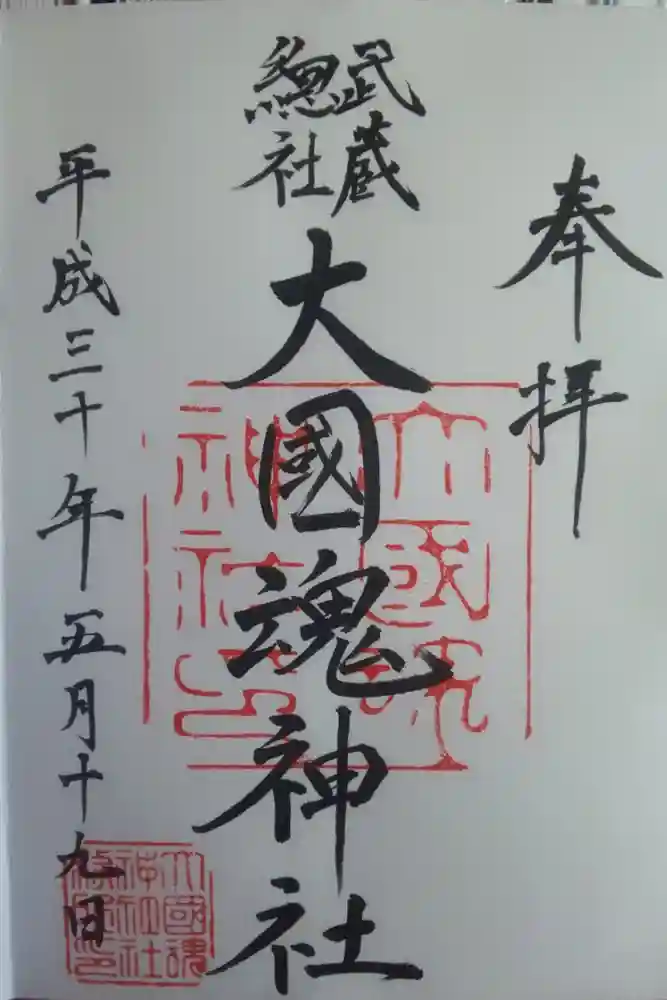 奉拝
武蔵
總社
大國魂神社
平成三十年五月十九日
大國魂
神社之印